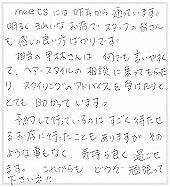 meetsには昨年から通っています。
明るくきれいなお店でスタッフの皆さん
も感じの良い方ばかりです。
担当の栗林さんは何でも言いやすく
て、ヘアースタイルの相談に乗ってもらった
り、スタイリングのアドバイスを受けたりと
とても助かっています。
予約して行っているのにすごく待たせ
るお店に行ったこともありますがその
ような事もなく、気持ち良く過ごせ
ます。これからも どうぞ頑張って
下さいネ!!